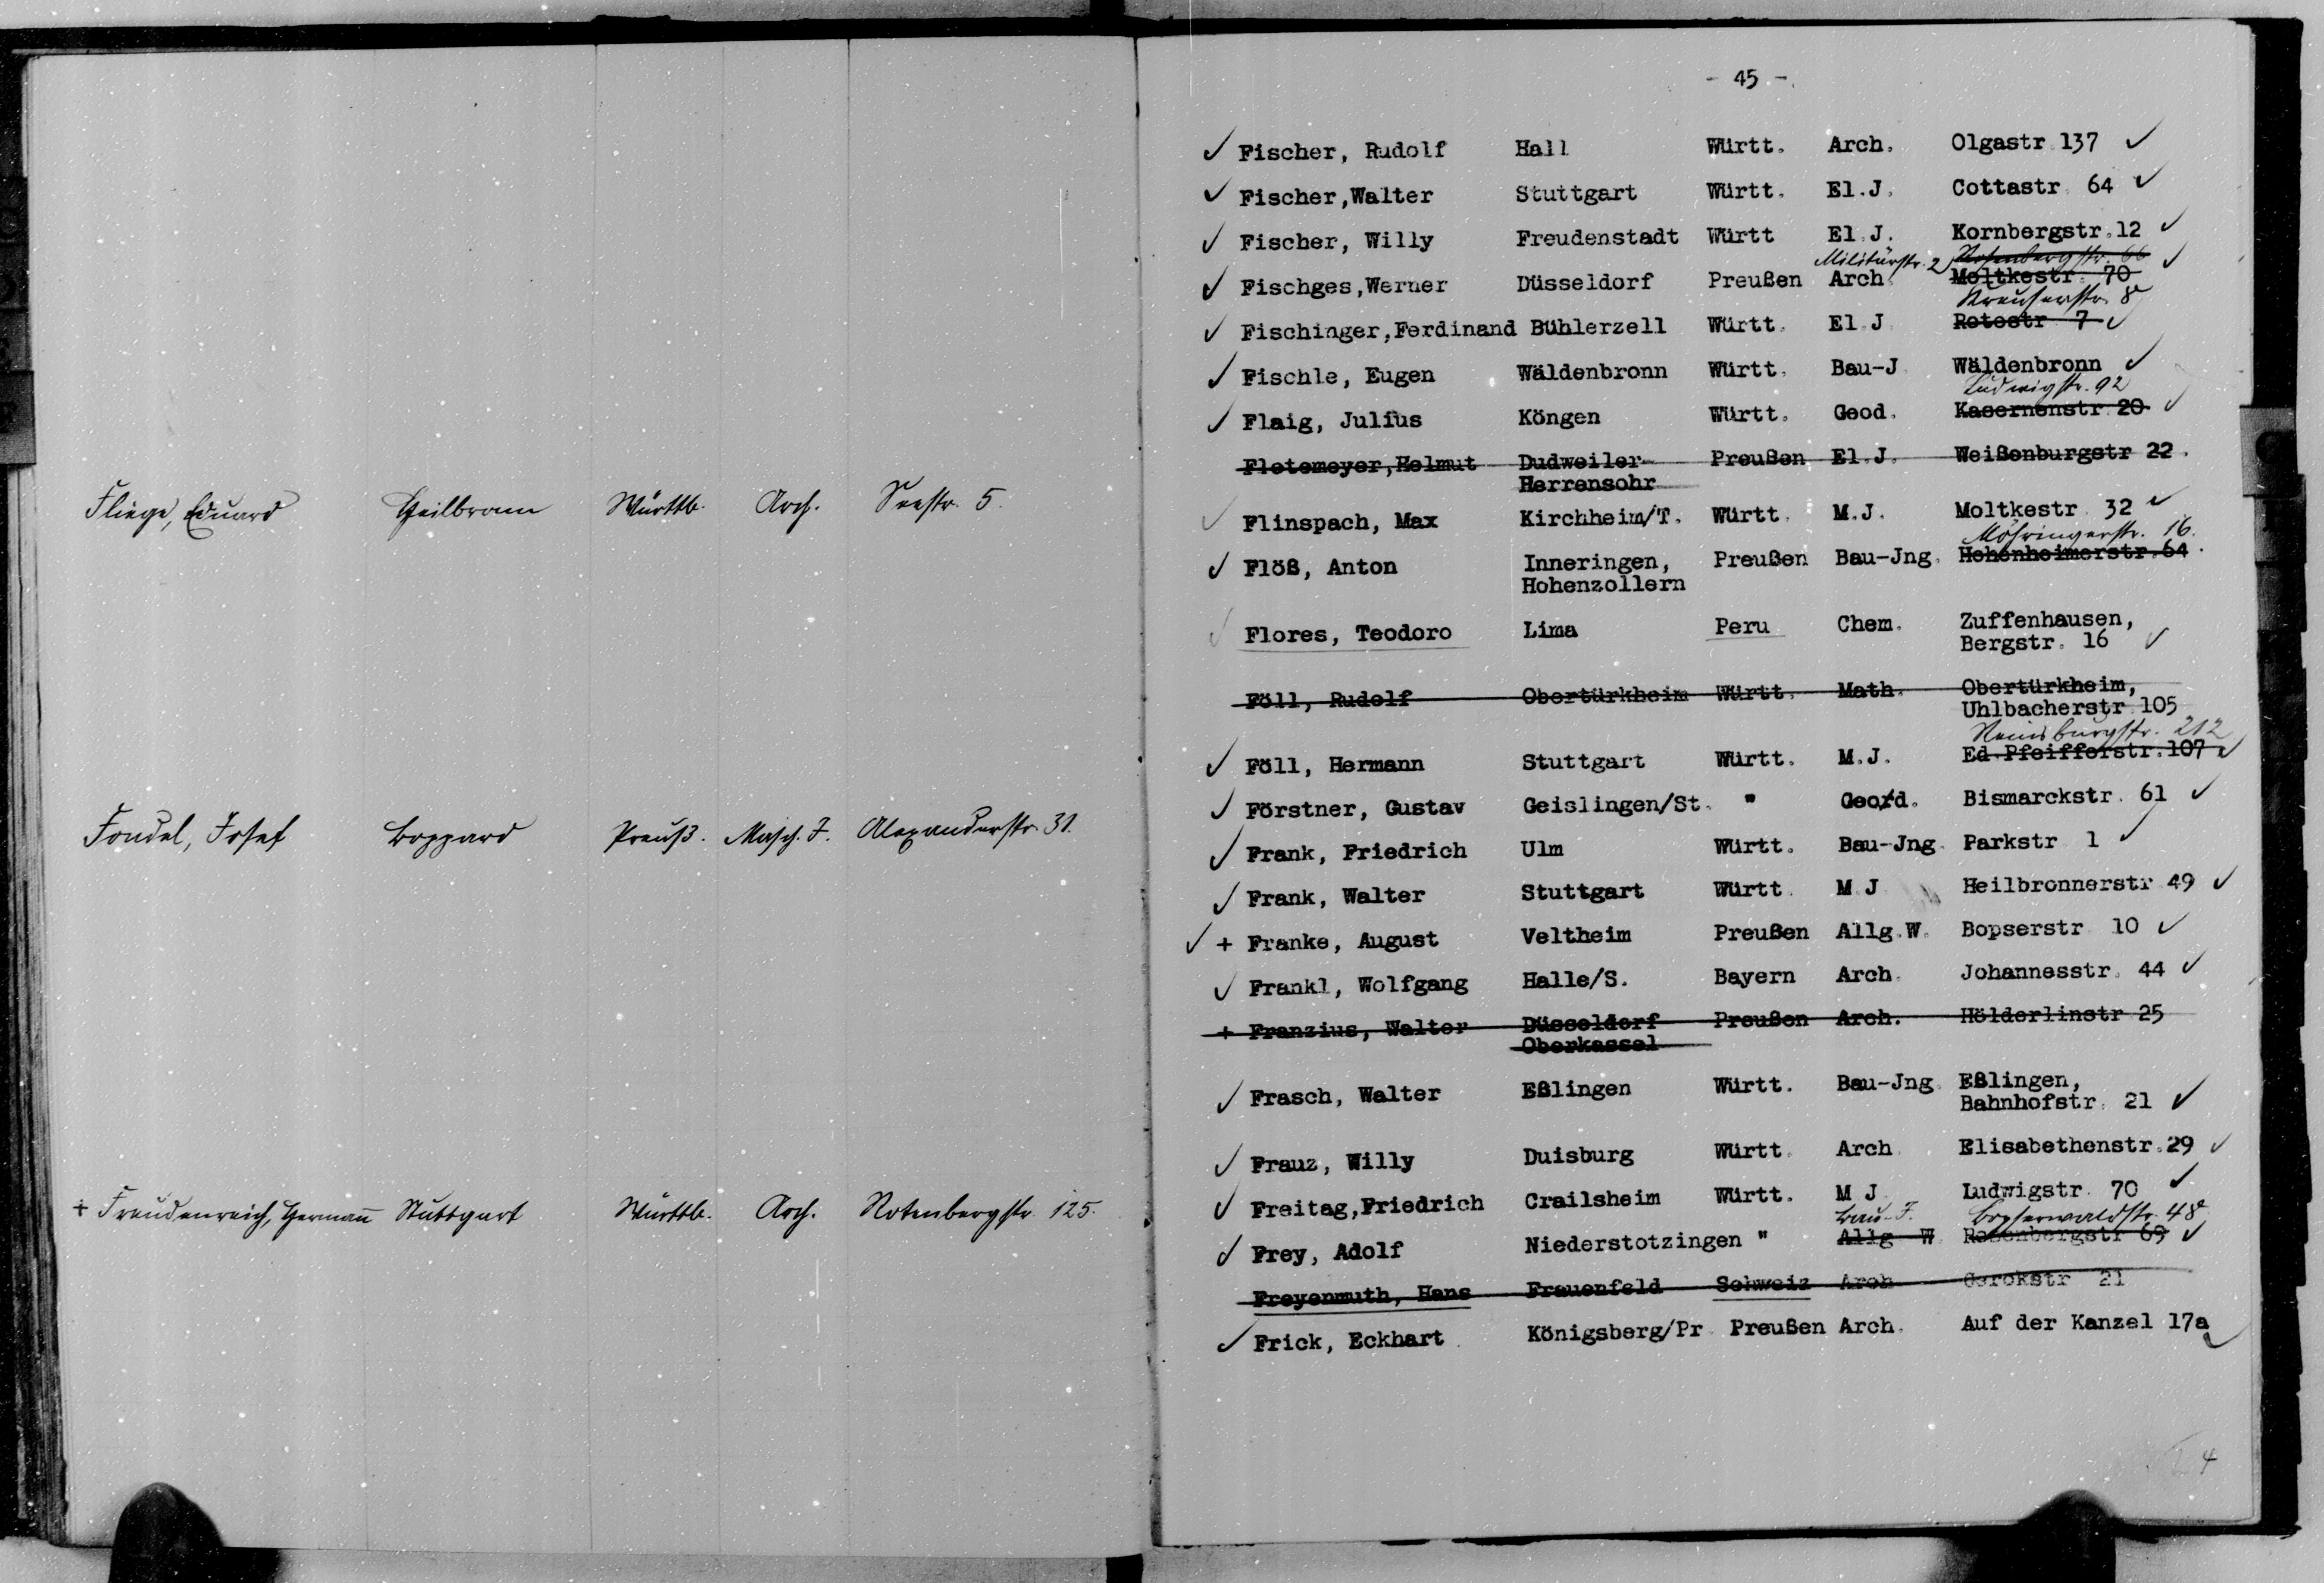 Fliege, Eduard Heilbronn Württb. Arch. Seestr. 5.
Fondel, Josef Boppard Preuß. Masch. J. Alexanderstr. 31.
+ Freudenreich, Hermann Stuttgart Württb. Arch. Rotenbergstr. 125.
- 45 -
✓ Fischer, Rudolf Hall Württ. Arch. Olgastr. 137 ✓
✓ Fischer,Walter Stuttgart Württ. El.J. Cottastr. 64 ✓
✓ Fischer, Willy Freudenstadt Württ El.J. Kornbergstr.12 ✓
Militärstr. 2 Rosenbergstr. 66 ✓
✓ Fischges,Werner Düsseldorf Preußen Arch. Moltkestr. 70
Kreuserstr. 8
✓ Fischinger,Ferdinand Bühlerzell Württ. El.J. Rotestr 7 ✓
✓ Fischle, Eugen Wäldenbronn Württ. Bau-J. Wäldenbronn ✓
Ludwigstr. 92
✓ Flaig, Julius Köngen Württ. Geod. Kasernenstr.20 ✓
Fletemeyer,Helmut Dudweiler- Preußen El.J. Weißenburgstr 22.
Herrensohr
✓ Flinspach, Max Kirchheim/T. Württ. M.J. Moltkestr. 32 ✓
Möhringerstr. 16.
✓ Flöß, Anton Inneringen, Preußen Bau-Jng. Hohenheimerstr.64.
Hohenzollern
✓ Flores, Teodoro Lima Peru Chem. Zuffenhausen,
Bergstr. 16 ✓
Föll, Rudolf Obertürkheim Württ. Math. Obertürkheim,
Uhlbacherstr 105
Reinsburgstr. 212
✓ Föll, Hermann Stuttgart Württ. M.J. Ed.Pfeifferstr.107 ✓
✓ Förstner, Gustav Geislingen/St. " Geord. Bismarckstr. 61 ✓
✓ Frank, Friedrich Ulm Württ. Bau-Jng. Parkstr 1 ✓
✓ Frank, Walter Stuttgart Württ. M J Heilbronnerstr 49 ✓
✓ + Franke, August Veltheim Preußen Allg.W. Bopserstr 10 ✓
✓ Frankl, Wolfgang Halle/S. Bayern Arch. Johannesstr. 44 ✓
+ Franzius, Walter Düsseldorf Preußen Arch. Hölderlinstr 25
Oberkassel
✓ Frasch, Walter Eßlingen Württ. Bau-Jng. Eßlingen,
Bahnhofstr. 21 ✓
✓ Frauz, Willy Duisburg Württ. Arch. Elisabethenstr.29 ✓
✓ Freitag,Friedrich Crailsheim Württ. M J Ludwigstr. 70 ✓
Bau-J. Bopserwaldstr. 48
✓ Frey, Adolf Niederstotzingen " Allg W. Rosenbergstr 69 ✓
Freyenmuth, Hans Frauenfeld Schweiz Arch Gerokstr 21
✓ Frick, Eckhart Königsberg/Pr. Preußen Arch. Auf der Kanzel 17a ✓
4